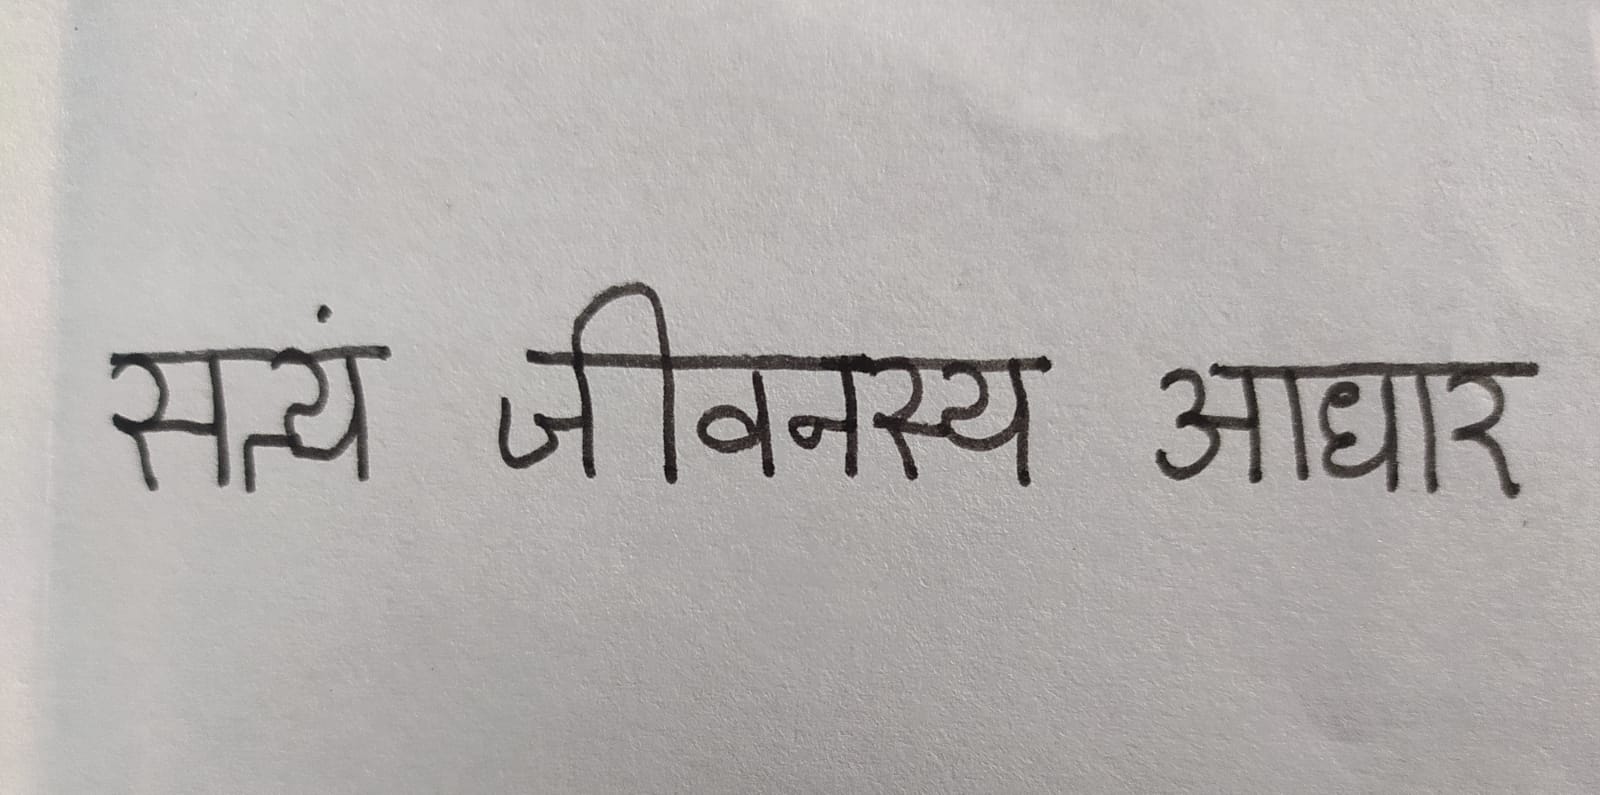 सत्यं जीवनस्य आधार